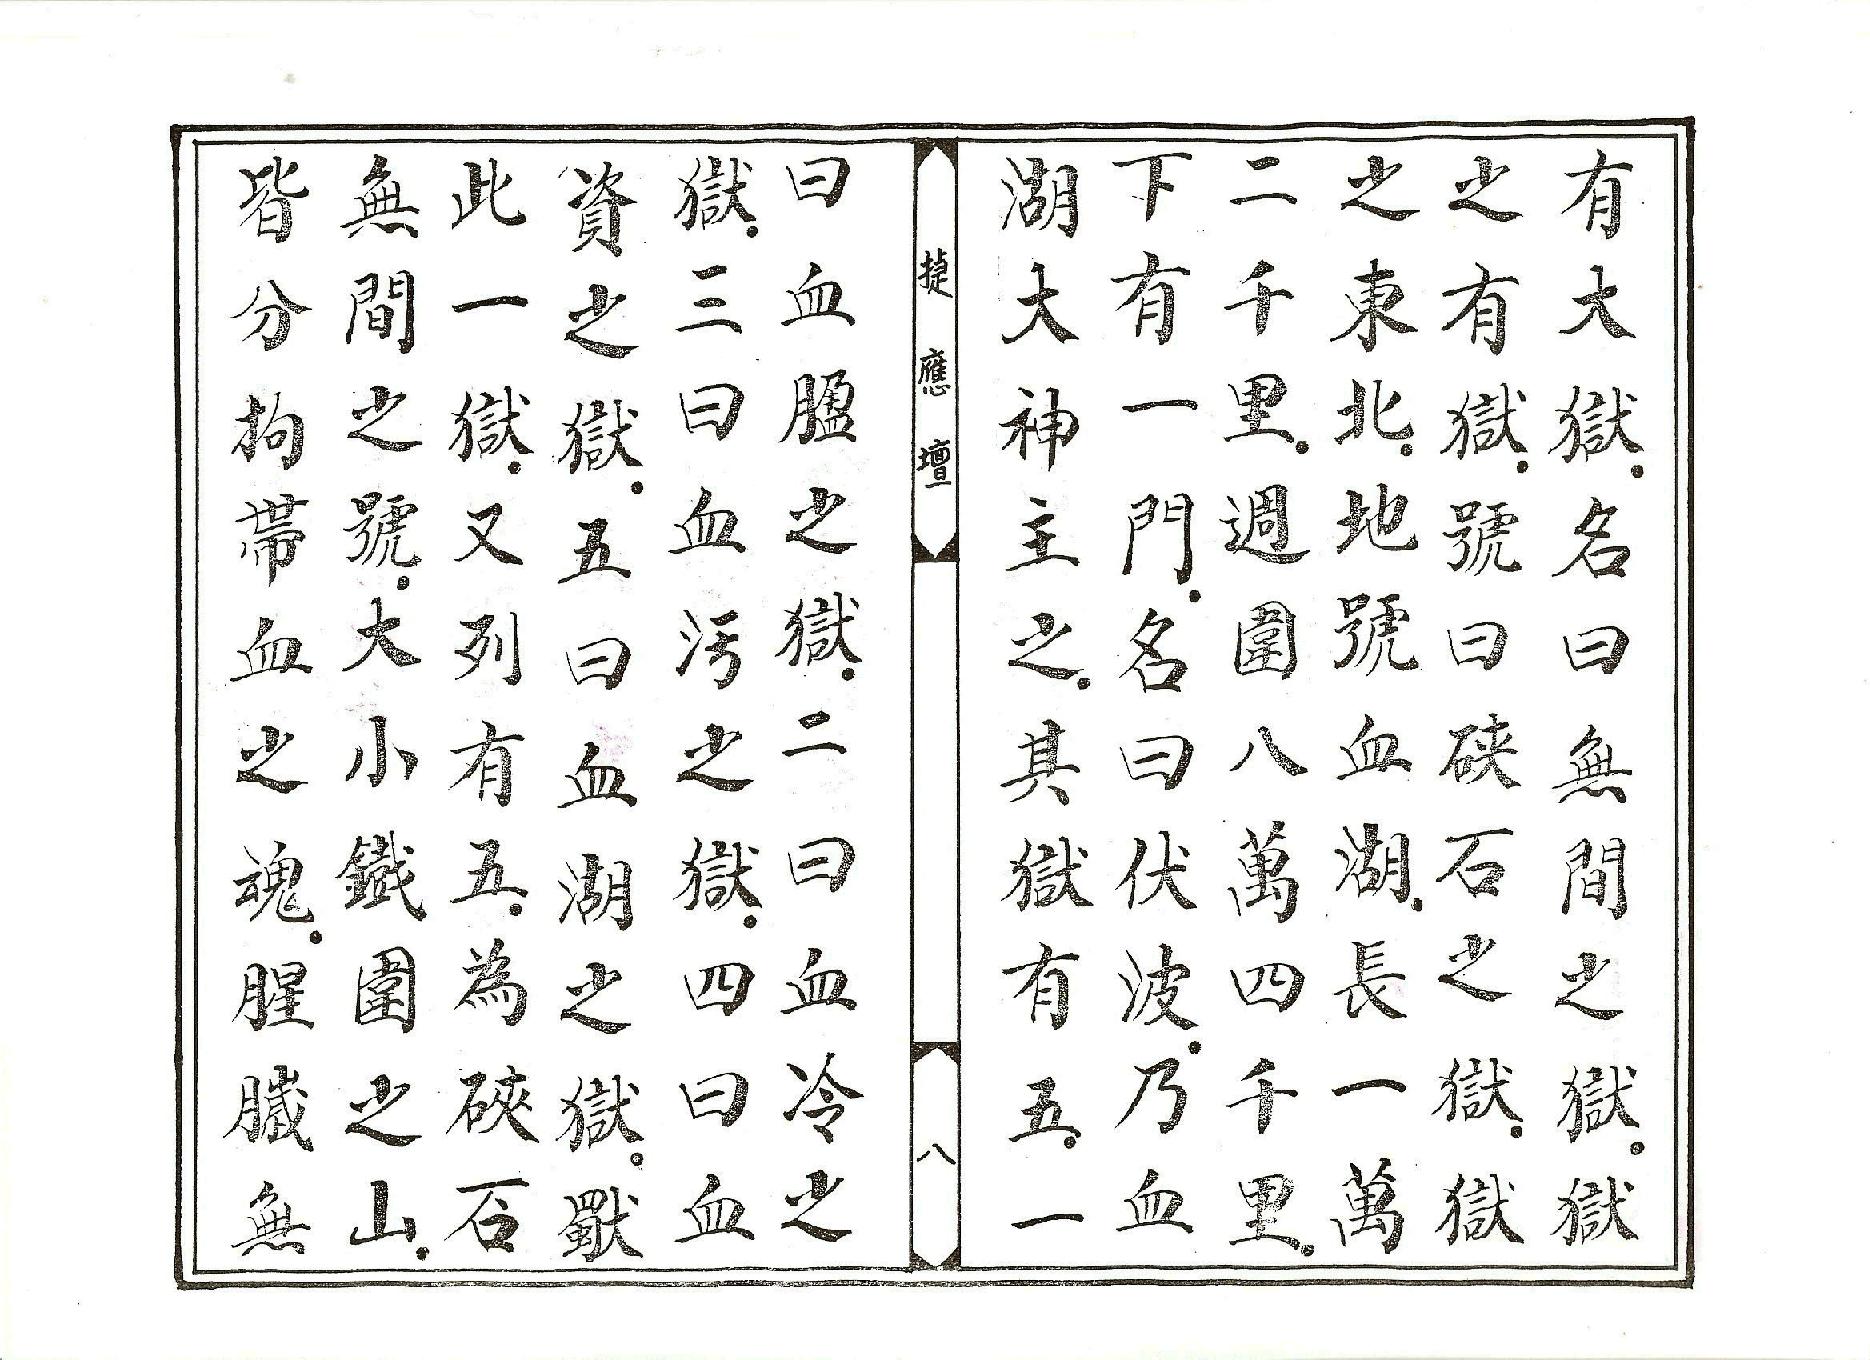 有大獄.名曰無間之獄.獄
之有獄.號曰硤石之獄.獄
之東北.地號血湖.長一萬
二千里.週圍八萬四千里.
下有一門.名曰伏波.乃血
湖大神主之.其獄有五.一
捷應壇
八
曰血𥁞之獄.二曰血冷之
獄.三曰血污之獄.四曰血
資之獄.五曰血湖之獄.獸
此一獄.又列有五.為硤石
無間之號.大小鐵圍之山.
皆分拘帶血之魂.腥臟無